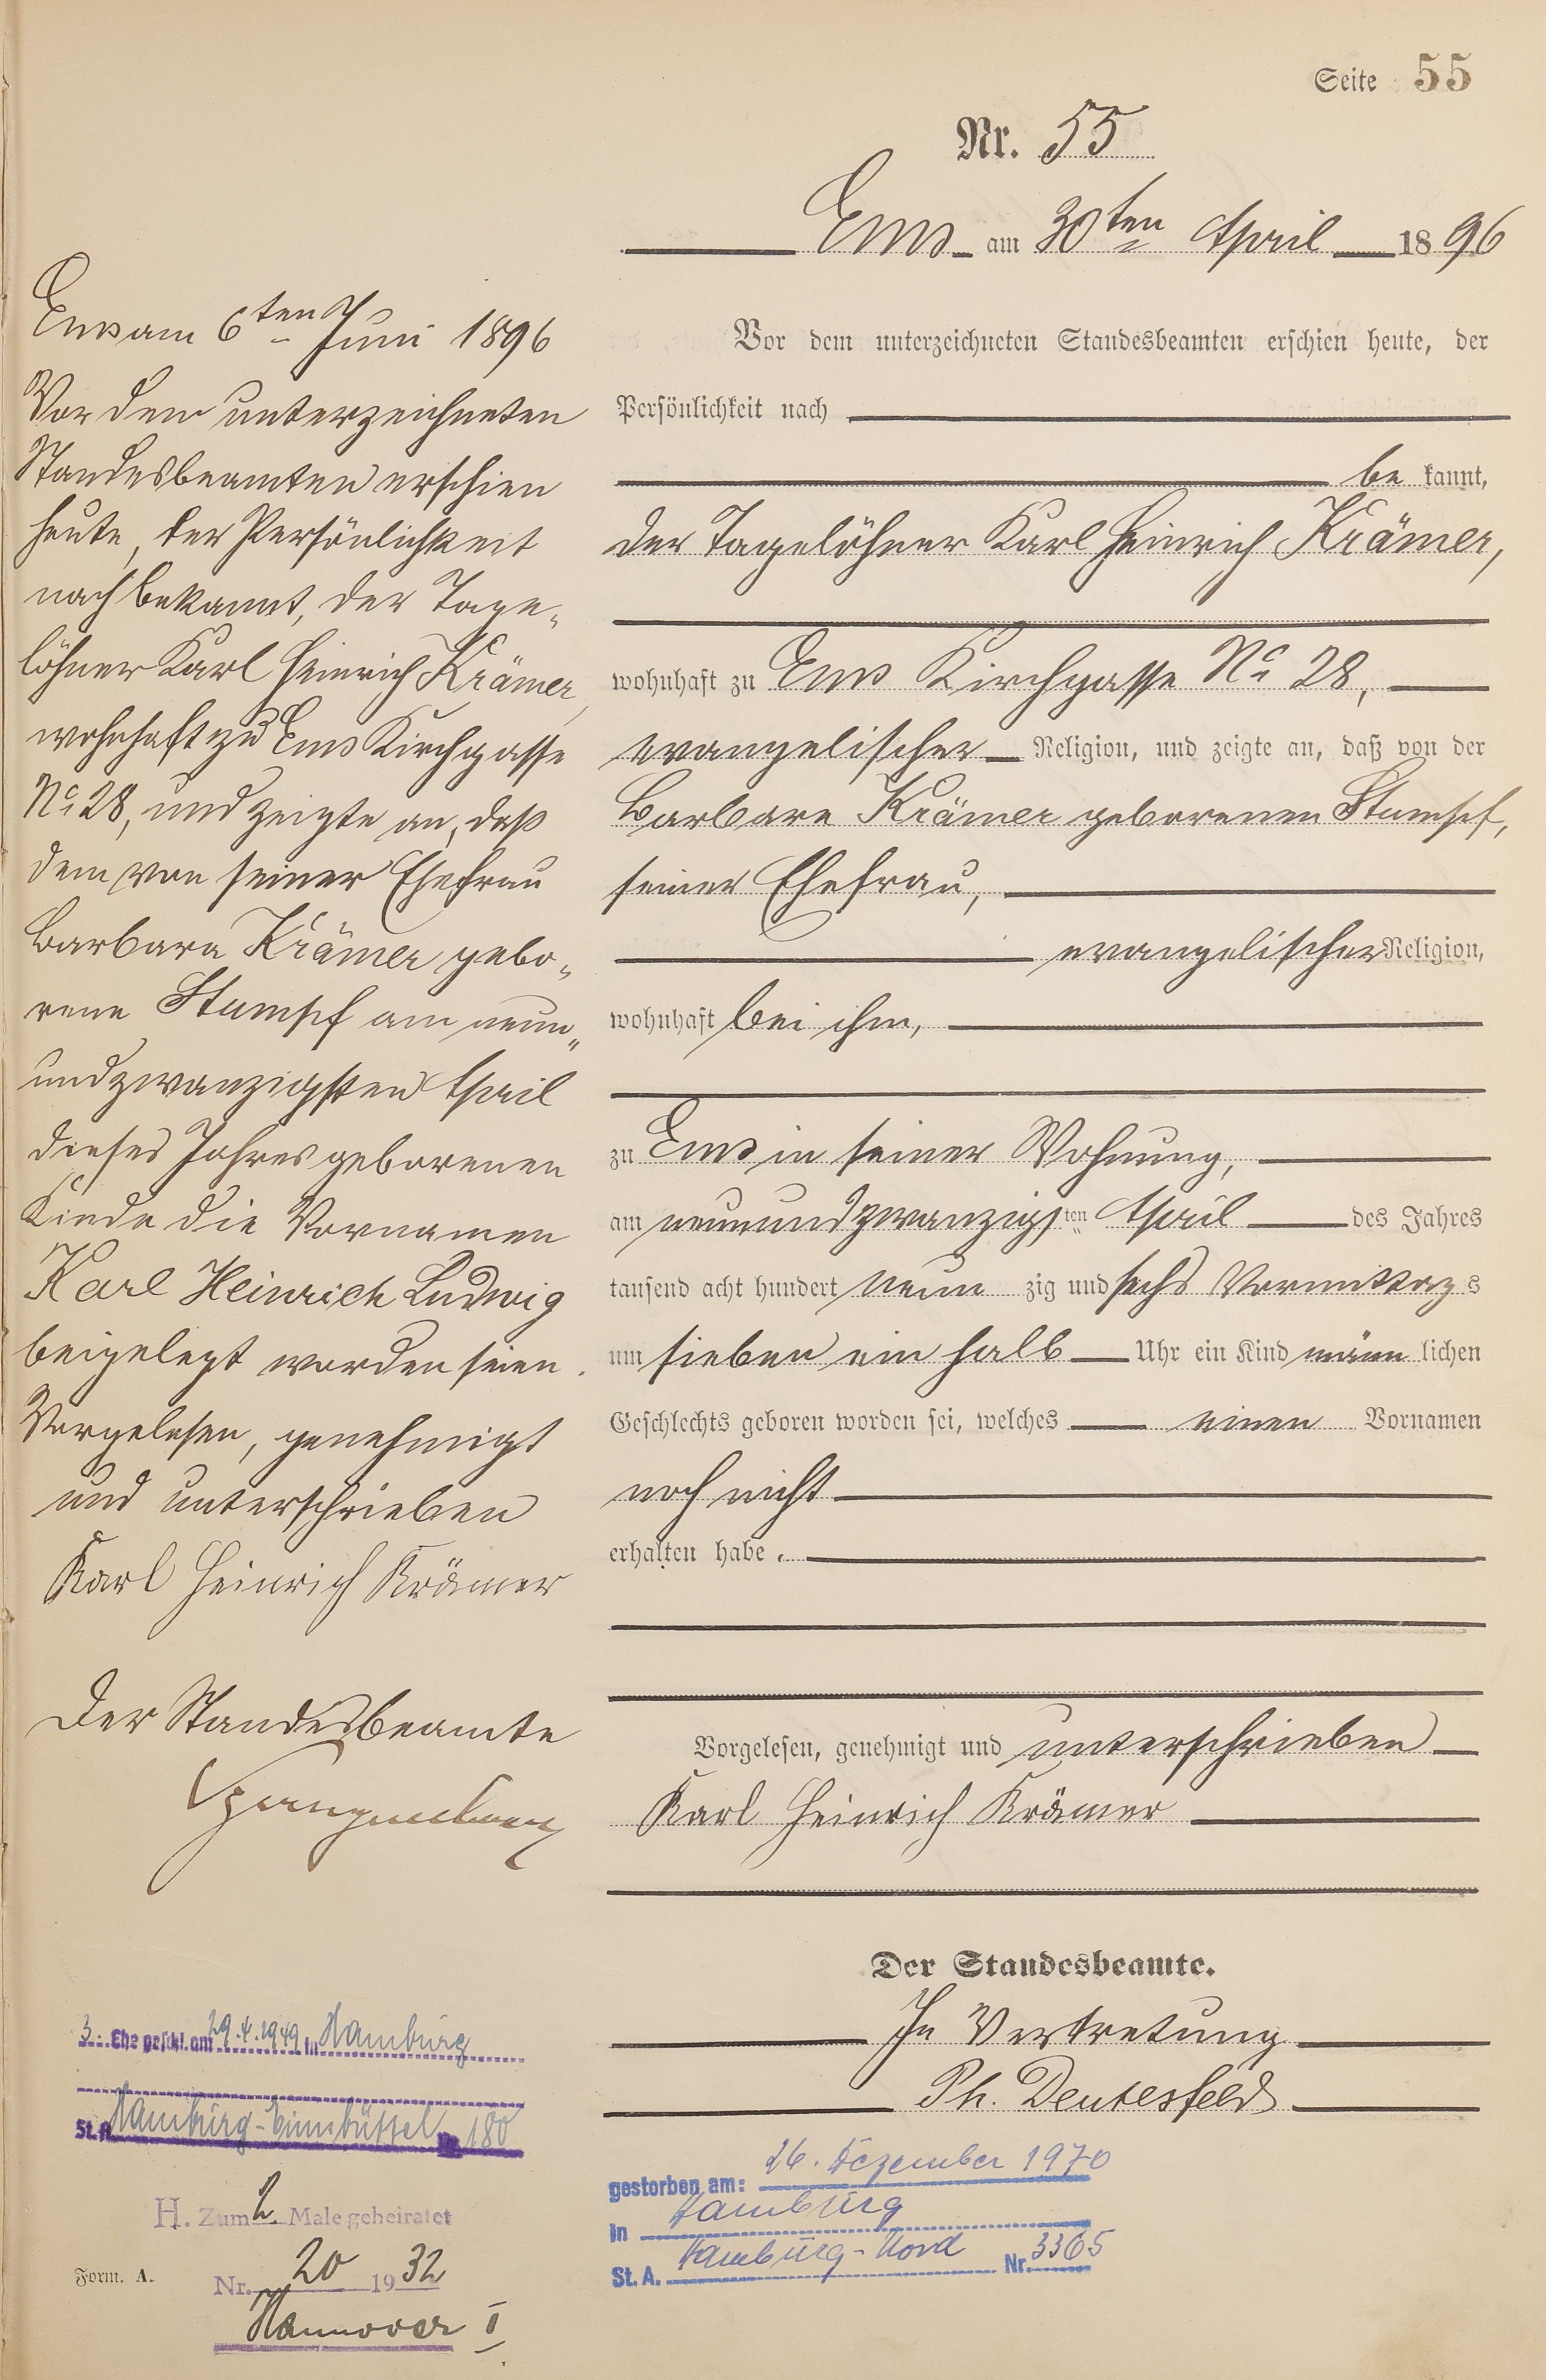 Seite 55
Nr. 55
Ems am 30ten April 1896
Vor dem unterzeichneten Standesbeamten erschien heute, der
Persönlichkeit nach
be kannt,
der Tagelöhner Karl Heinrich Krämer,
wohnhaft zu Ems Kirchgasse No 28,
evangelischer Religion, und zeigte an, daß von der
Barbara Krämer geborenen Stumpf,
seiner Ehefrau,
evangelischer Religion,
wohnhaft bei ihm,
zu Ems in seiner Wohnung,
am neunundzwanzigsten April des Jahres
tausend acht hundert neun zig und sechs Vormittags
um sieben ein halb Uhr ein Kind männ lichen
Geschlechts geboren worden sei, welches einen Vornamen
noch nicht
erhalten habe.
Vorgelesen, genehmigt und unterschrieben
Karl Heinrich Krämer
Der Standesbeamte.
In Vertretung
Ph. Deutesfeld
Ems am 6ten Juni 1896
Vor dem unterzeichneten
Standesbeamten erschien
heute, der Persönlichkeit
nach bekannt, der Tage-
löhner Karl Heinrich Krämer,
wohnhaft zu Ems Kirchgasse
No 28, und zeigte an, daß
dem von seiner Ehefrau
Barbara Krämer gebo-
rene Stumpf am neun-
undzwanzigsten April
dieses Jahres geborenen
Kinde die Vornamen
Karl Heinrich Ludwig
beigelegt worden seien.
Vorgelesen, genehmigt
und unterschrieben
Karl Heinrich Krämer
Der Standesbeamte
3. Ehe geschl. am 29.4.1949 in Hamburg
St.A. Hamburg-Eimsbüttel Nr. 180
H. Zum 2. Male geheiratet
Nr. 20 1932
Hannover I
Form. A.
gestorben am: 26. Dezember 1970
in Hamburg
St. A. Hamburg-Nord Nr. 3365